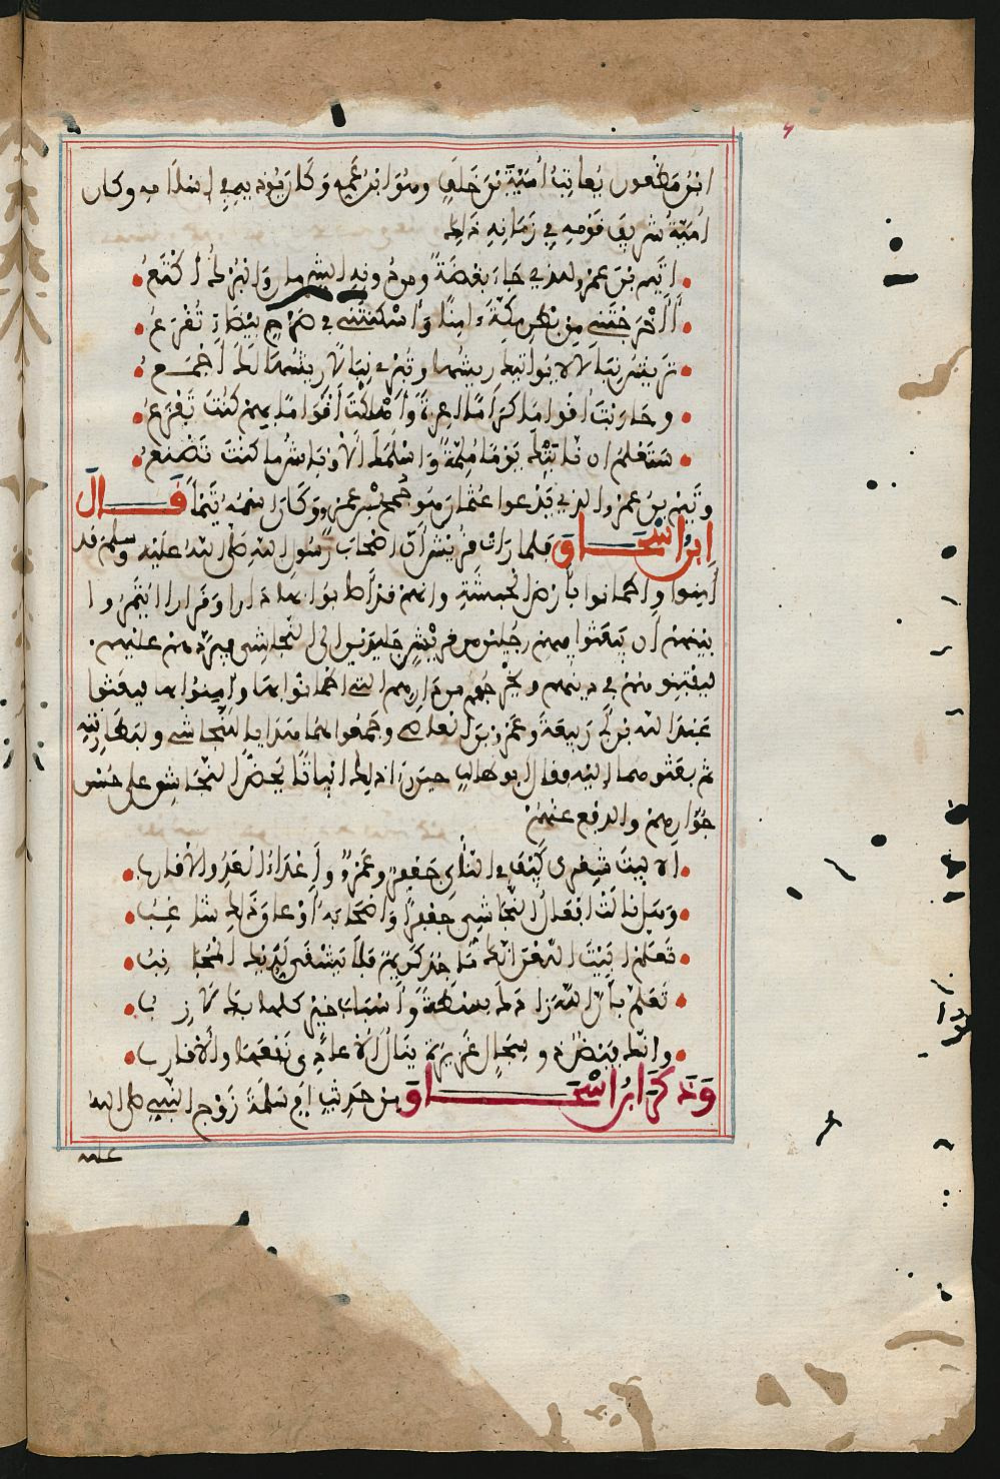 ابن مظعون يعاتب أمية بن خلف وهو ابن عمه وكان يؤذيه في إسلامه وكان
أمية شريف قومه في زمانه ذلك
أتيم بن عمرو للذي جاء بغضة ومن دونه الشرمان والبرك أكتع
أأخرجتني من بطن مكة ءامنا وأسكنتني في صرح بيضاء تقذع
تريش نبالا لا يواتيك ريشها وتبري نبالا ريشها لك أجمع
وحاربت أقواما كراما أعزة وأهلكت أقواما بهم كنت تفزع
ستعلم إن نابتك يوما ملمة وأسلمك الأوباش ما كنت تصنع
وتيم بن عمرو الذي يدعو عثمان هو جمح بن عمرو وكان اسمه تيما قال
ابن اسحاق فلما رأت قريش أن أصحاب رسول الله صلى الله عليه وسلم قد
أمنوا واطمأنوا بأرض الحبشة وأنهم قد أصابوا بها دارا وقرارا ائتمروا
بينهم أن يبعثوا منهم رجلين من قريش جليدين إلى النجاشي فيرد هم عليهم
ليفتنوهم في دينهم ويخرجهم من دارهم التي اطمأنوا بها وأمنوا بها فبعثوا
عبد الله بن أبي ربيعة وعمرو بن العاصي وجمعوا لهما هدايا للنجاشي ولبطارقته
ثم بعثوهما إليه فقال أبو طالب حين رأى ذلك أبياتا يحض النجاشي على حسن
جوارهم والدفع عنهم
ألا ليت شعري كيف في النأي جعفر وعمرو وأعداء العدو الأقارب
وهل نالت أفعال النجاشي جعفرا وأصحابه أو عاق ذلك شاغب
تعلم أبيت اللعن أنك ماجد كريم فلا يشقى لديك المجانب
تعلم بأن الله زادك بسطة وأسباب خير كلها بك لازب
وأنك فيض ذو سجال غزيرة ينال الأعادي نفعها والأقارب
وذكر ابن اسحاق من حديث أم سلمة زوج النبي صلى الله
عليه